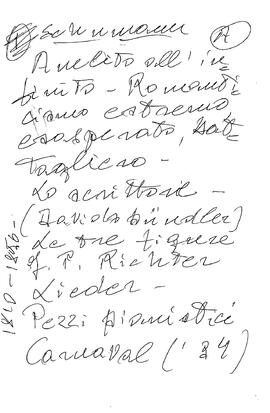 Schumann A
Anelito all'in=
finito - Romanti
cismo estremo
esasperato, bat=
tagliero -
Lo scrittore -
(Davidsbündler)
Le tre figure
J. P. Richter
Lieder -
Pezzi pianistici
Carnaval ('34)
1810-1856